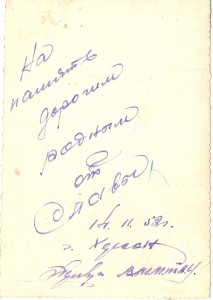 На
память
дорогим
родным
от
Славы
14. 11. 52 г.
г. Хурсан